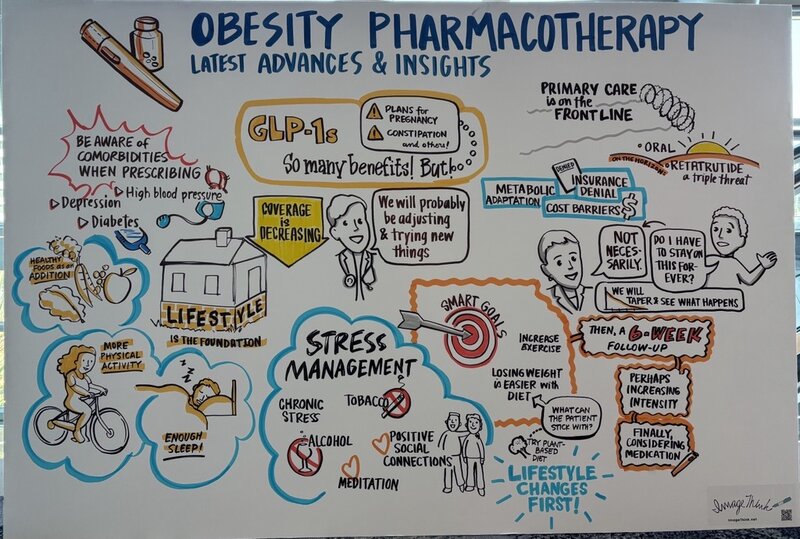 OBESITY PHARMACOTHERAPY
LATEST ADVANCES & INSIGHTS
PRIMARY CARE
is on the
FRONT LINE
GLP-1s
PLANS for
PREGNANCY
CONSTIPATION
and others!
So many benefits! But!
BE AWARE of
COMORBIDITIES
WHEN PRESCRIBING
High blood pressure
Depression
Diabetes
ORAL
ON THE HORIZON:
RETATRUTIDE
a triple threat
METABOLIC
ADAPTATION
DENIED
INSURANCE
DENIAL
COST BARRIERS
$
COVERAGE
is
DECREASING
We will probably
be adjusting
& trying new
things
NOT
NECES-
SARILY.
DO I HAVE
TO STAY ON
THIS FOR-
EVER?
WE WILL
TAPER & SEE WHAT HAPPENS
HEALTHY
FOODS as an
ADDITION
LIFESTYLE
IS THE FOUNDATION
MORE
PHYSICAL
ACTIVITY
z z z
ENOUGH
SLEEP!
STRESS
MANAGEMENT
CHRONIC
STRESS
TOBACCO
ALCOHOL
POSITIVE
SOCIAL
CONNECTIONS
MEDITATION
SMART GOALS
INCREASE
EXERCISE
LOSING WEIGHT
is EASIER with
DIET
WHAT CAN
THE PATIENT
STICK WITH?
TRY PLANT-
BASED
DIET
LIFESTYLE
CHANGES
FIRST!
THEN, A 6-WEEK
FOLLOW-UP
PERHAPS
INCREASING
INTENSITY
FINALLY,
CONSIDERING
MEDICATION
ImageThink
imagethink.net